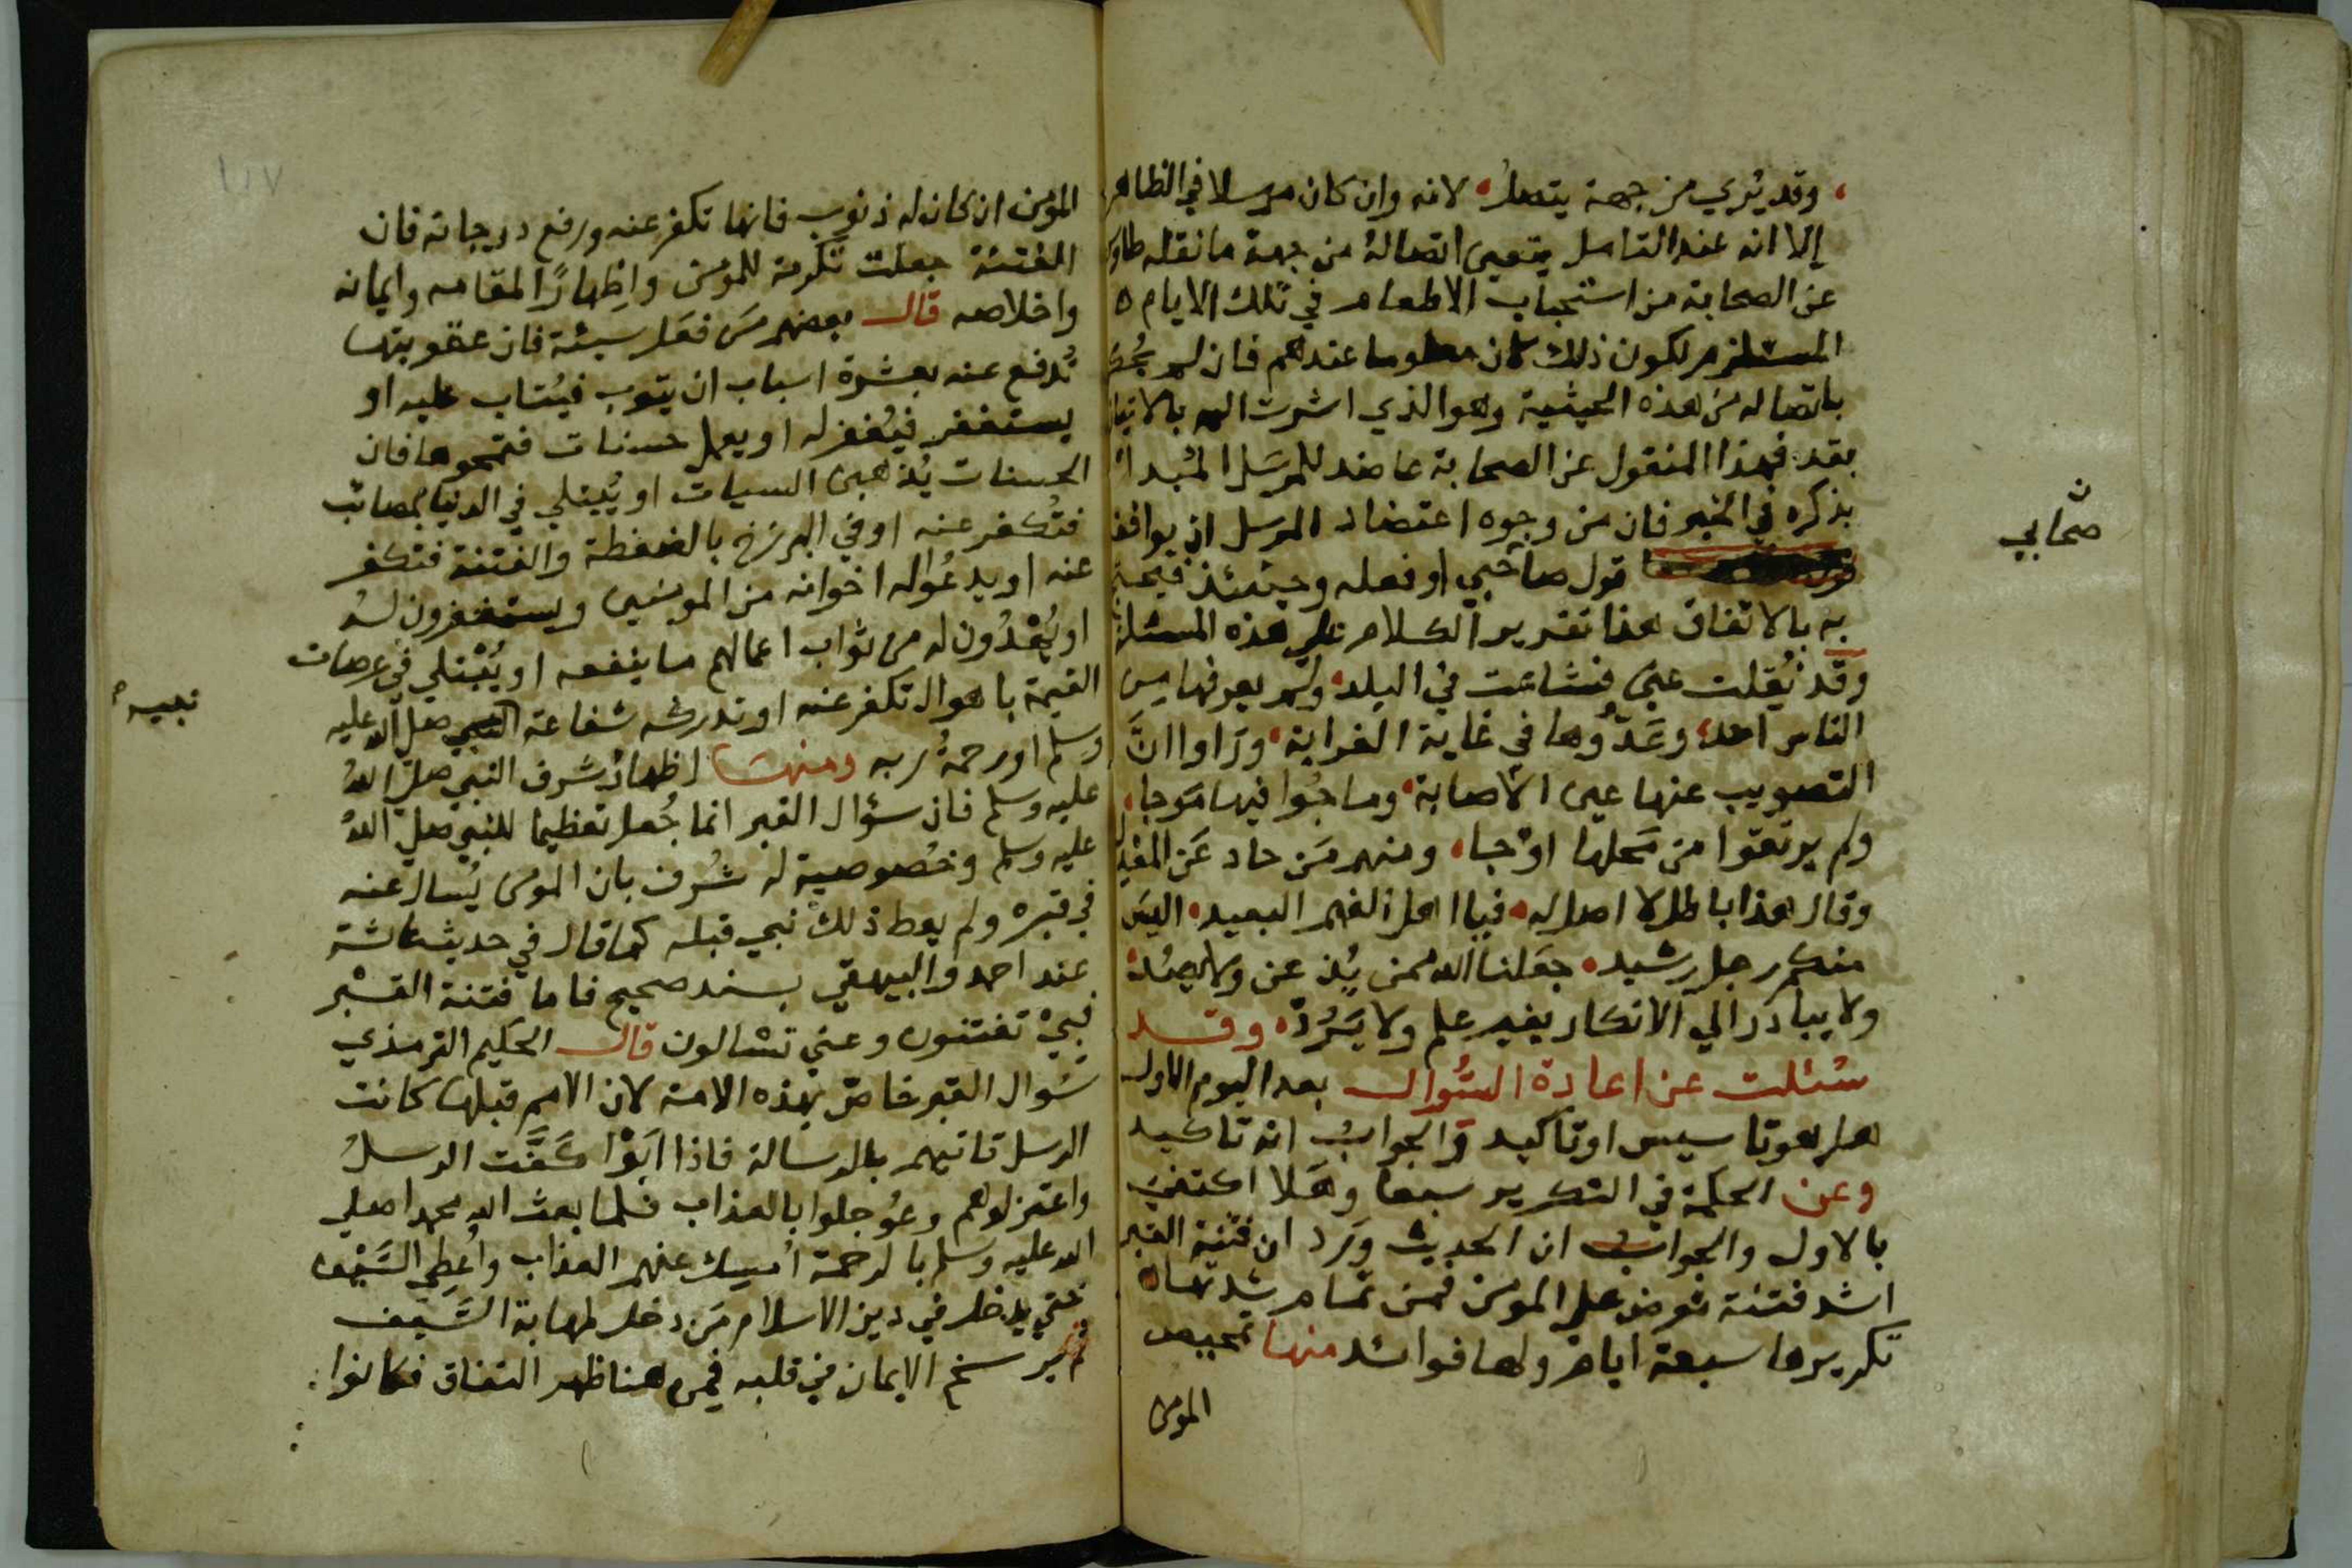 وقد يُري من جهة يتصلُ لانه وان كان مرسلا في الظاهر
إلا انه عند التامل يتعين اتصالهُ من جهة ما نقله طاوس
عن الصحابة من استحباب الاطعام في تلك الايام
المستلزم لكون ذلك كان معلوما عندهم فان لم يُحكم
باتصاله من هذه الحيثية وهو الذي اشرت اليه بالاتيان
بقد فهذا المنقول عن الصحابة عاضد للمرسَل المُبدا
بذكره في الخبر فان من وجوه اعتضاد المرسل ان يوافقه
قول صاحبي او فعله وحينئذ فيحتج
صحابي
به بالاتفاق هذا تقرير الكلام علي هذه المسئلة
وقد نُقلت عني فشاعت في البلد ولم يعرفها من
الناس احد وعَدّوها في غاية الغرابة ورَاوا انَّ
التصويب عنها عين الاصابة وماجُوا فيها مَوجا
ولم يرتقوا من مَحلها اوْجا ومنهم مَن حاد عَن
وقال هذا باطل لا اصل له فيا اهل الفهم البعيد اليسَ
منكم رجل رشيد جعَلنا الله ممن يُذ عن ولا يصُدّ
ولا يبادر الي الانكار بغير علم ولا يَرُدّ وقد
سُئلت عن اعادة السُّوال بعد اليوم الاول
هل هو تاسيس او تاكيد والجوابُ انه تاكيد
وعن الحكمة في التكرير سبعا وهَلا اكتفي
بالاول والجوابُ ان الحديث ورَد ان فتنة القبر
اشد فتنة تعرض علي المومن فمن تمام شدتها
تكريرها سبعة ايام ولها فوائد منها تمحيص
المومن
المؤمن ان كان له ذنوب فانها تكفر عنه ورفع درجاته فان
الفتنة جعلت تكرمة للمومن واظِهارًا لمقامه وايمانه
واخلاصه قال بعضهم مَن فعَل سيئة فان عقوبتها
تُدفع عنه بعشرة اسباب ان يتوب فيُتاب عليه او
يستغفر فيُغفر له او يعمل حسنات فتمحوها فان
الحسنات يُذهبن السيات او يُبتلي في الدنيا بمصائب
فتُكفر عنه او في البرزخ بالضغطة والفتنة فتكفر
عنه او يدعُوا له اخوانه من المومنين ويستغفرون لهُ
او يُهْدُون له من ثواب اعمالهم ما ينفعه او يُبْتلي في عرصات
القيمة باهوال تكفر عنه او تدركه شفاعة النبي صلي الله عليه
نبيه
وسلم او رحمةُ ربه ومنها اظهارُ شرف النبي صلي اللهُ
عليه وسلم فان سؤال القبر انما جُعل تعظيما للنبي صلي اللهُ
عليه وسلم وخُصوصية له شُرف بان المومن يُسال عنه
في قبره ولم يعط ذلك نبي قبله كما قال في حديث عائشة
عند احمد والبيهقي بسند صحيح فاما فتنة القبْر
فبيْ تفتنون وعني تسالون قال الحكيم الترمذي
سُوال القبر خاصّ بهذه الامة لان الامم قبلها كانت
الرسل تاتيهم بالرسالة فاذا ابَوْا كَفَّت الرسلُ
واعتزلوهم وعُوجلوا بالعذاب فلما بعث الله محمدا صلي
الله عليه وسلم بالرحمة اُمسِك عنهم العذاب واُعطِي السَّيْف
حتي يدخل في دين الاسلام مَن دخل لمهابة السَّيف
ثم يرسخ الايمان في قلبه فمن هنا ظهر النفاق فكانوا